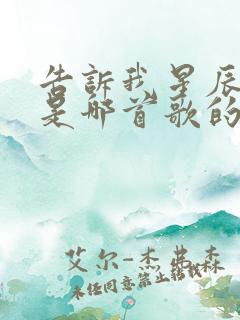 告訴我星辰
是哪首歌的
艾尔-杰弗森
未经同意禁止转载